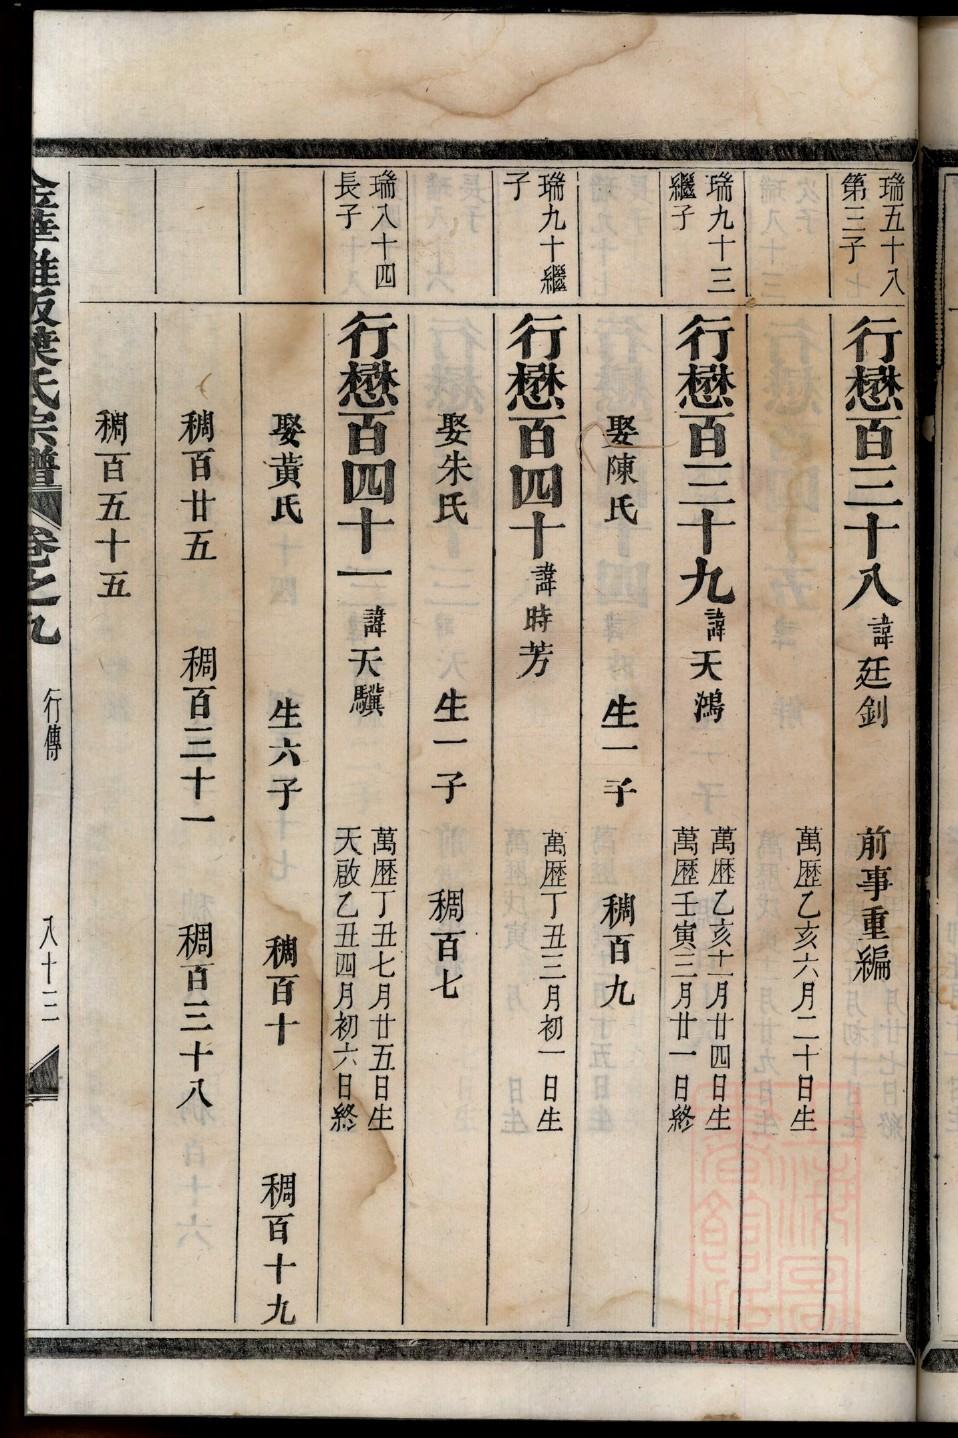 瑞五十八
第三子
行懋百三十八 諱廷釗 前事重編
萬歷乙亥六月二十日生
瑞九十三
繼子
行懋百三十九 諱天鴻 萬歷乙亥十一月廿四日生
萬歷壬寅三月廿一日終
娶陳氏 生一子 稠百九
瑞九十繼
子
行懋百四十 諱時芳 萬歷丁丑三月初一日生
娶朱氏 生一子 稠百七
瑞八十四
長子
行懋百四十一 諱天驥 萬歷丁丑七月廿五日生
天啟乙丑四月初六日終
娶黃氏 生六子 稠百十 稠百十九
稠百廿五 稠百三十一 稠百三十八
稠百五十五
葉氏宗譜 卷之九 行傳 八十三